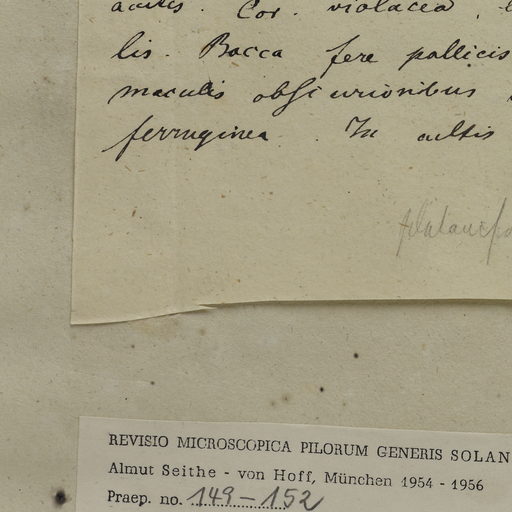 acutis. Cor. violacea,
lis. Bacca fere pollicis
maculis obscurioribus
ferruginea. In altis
REVISIO MICROSCOPICA PILORUM GENERIS SOLAN
Almut Seithe - von Hoff, München 1954 - 1956
Praep. no. 149-152